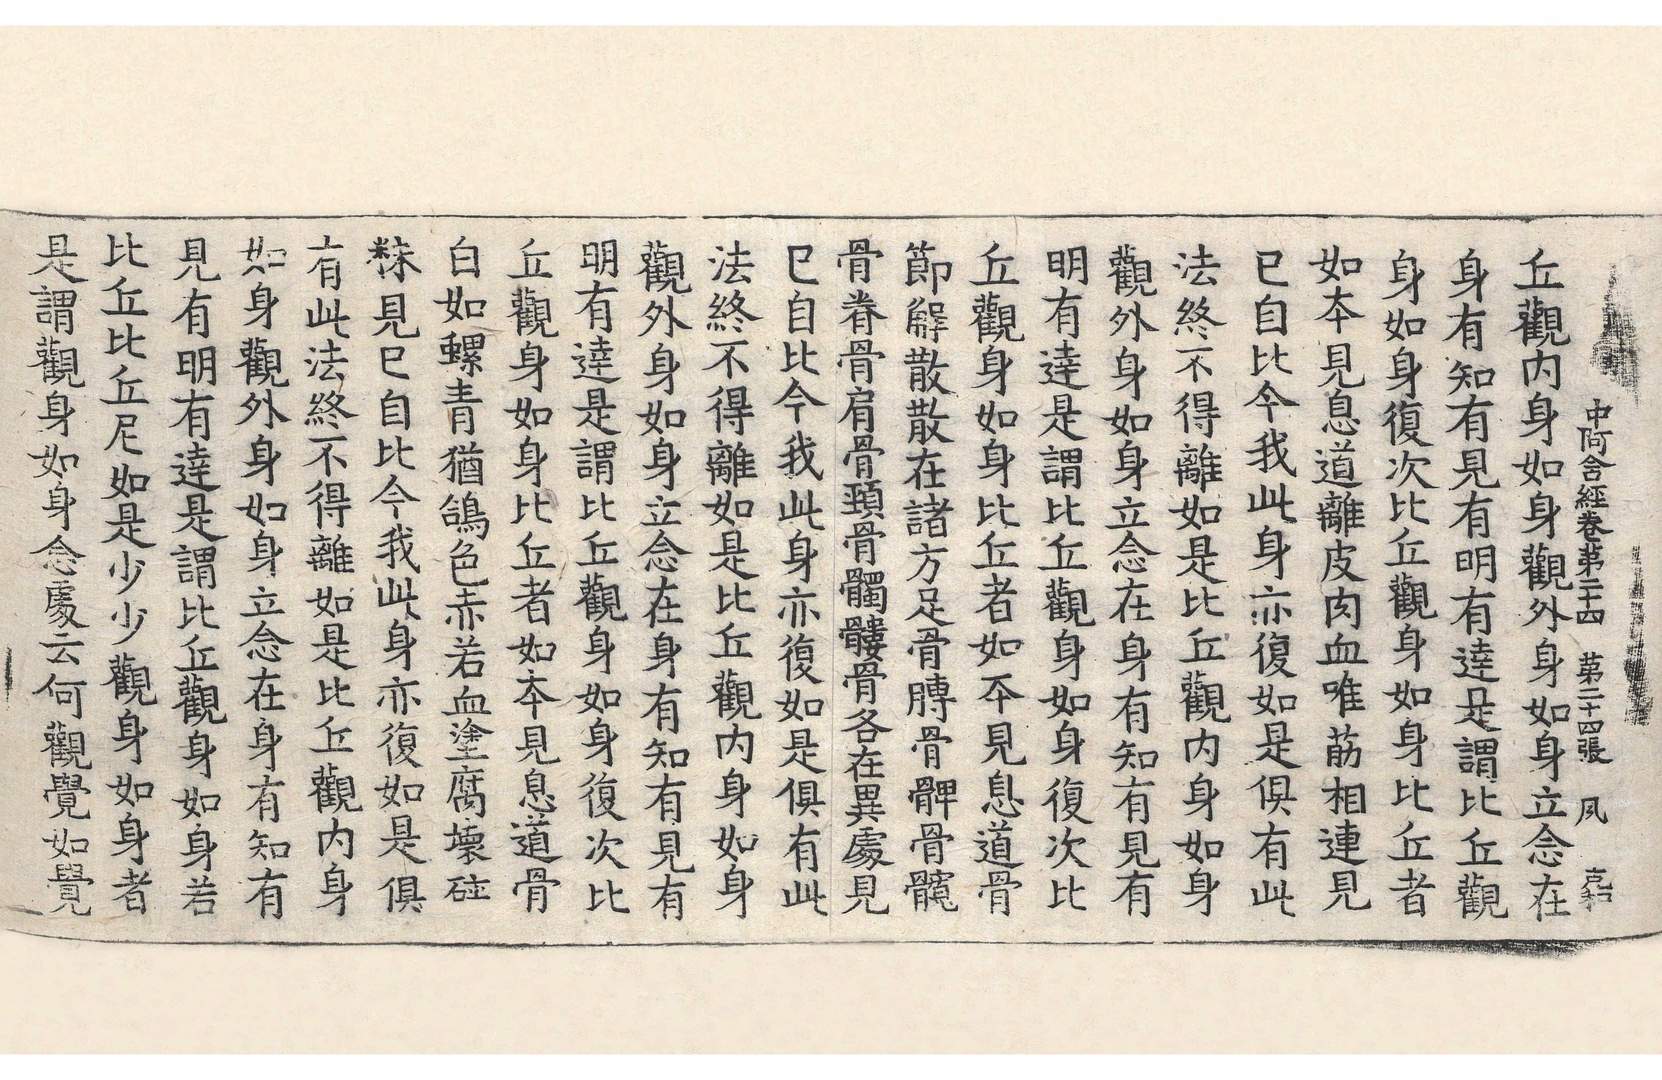 中阿含經卷第二十四 第二十四張 夙
丘觀内身如身觀外身如身立念在
身有知有見有明有達是謂比丘觀
身如身復次比丘觀身如身比丘者
如本見息道離皮肉血唯筋相連見
已自比今我此身亦復如是俱有此
法終不得離如是比丘觀内身如身
觀外身如身立念在身有知有見有
明有達是謂比丘觀身如身復次比
丘觀身如身比丘者如本見息道骨
節解散散在諸方足骨膞骨髀骨髖
骨脊骨肩骨頸骨髑髏骨各在異處見
已自比今我此身亦復如是俱有此
法終不得離如是比丘觀内身如身
觀外身如身立念在身有知有見有
明有達是謂比丘觀身如身復次比
丘觀身如身比丘者如本見息道骨
白如螺青猶鴿色赤若血塗腐壞碎
粖見已自比今我此身亦復如是俱
有此法終不得離如是比丘觀内身
如身觀外身如身立念在身有知有
見有明有達是謂比丘觀身如身若
比丘比丘尼如是少少觀身如身者
是謂觀身如身念處云何觀覺如覺